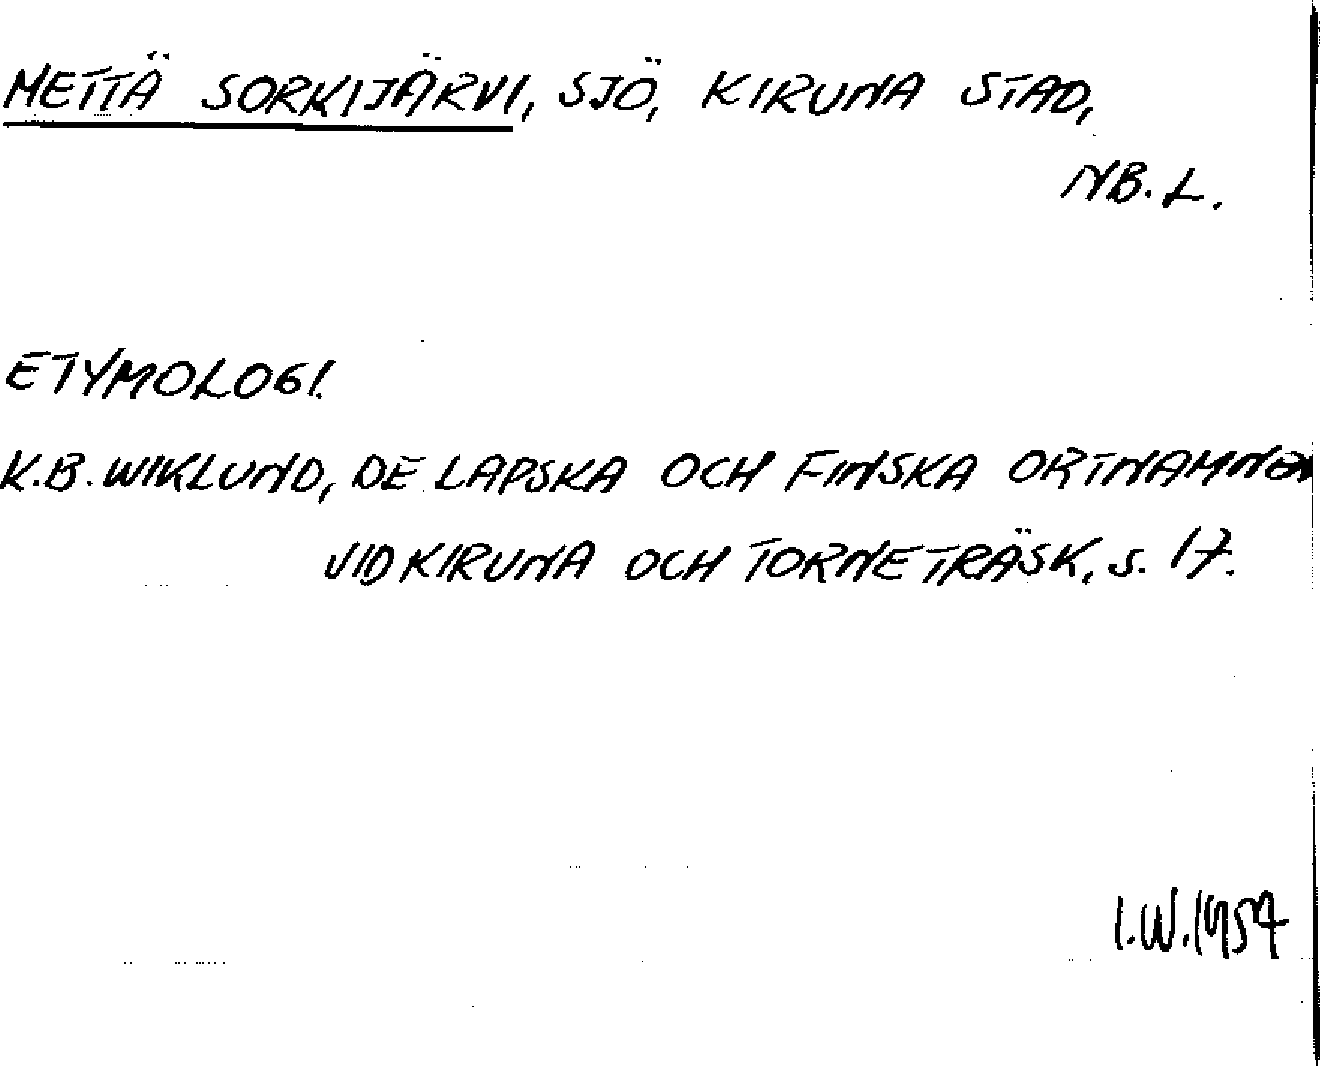 METTÄ SORKIJÄRVI, SJÖ, KIRUNA STAD,
NB. L.
ETYMOLOGI.
K.B. WIKLUND, DE LAPSKA OCH FINSKA ORTNAMNEN
VID KIRUNA OCH TORNETRÄSK, s. 17.
I.W. 1957